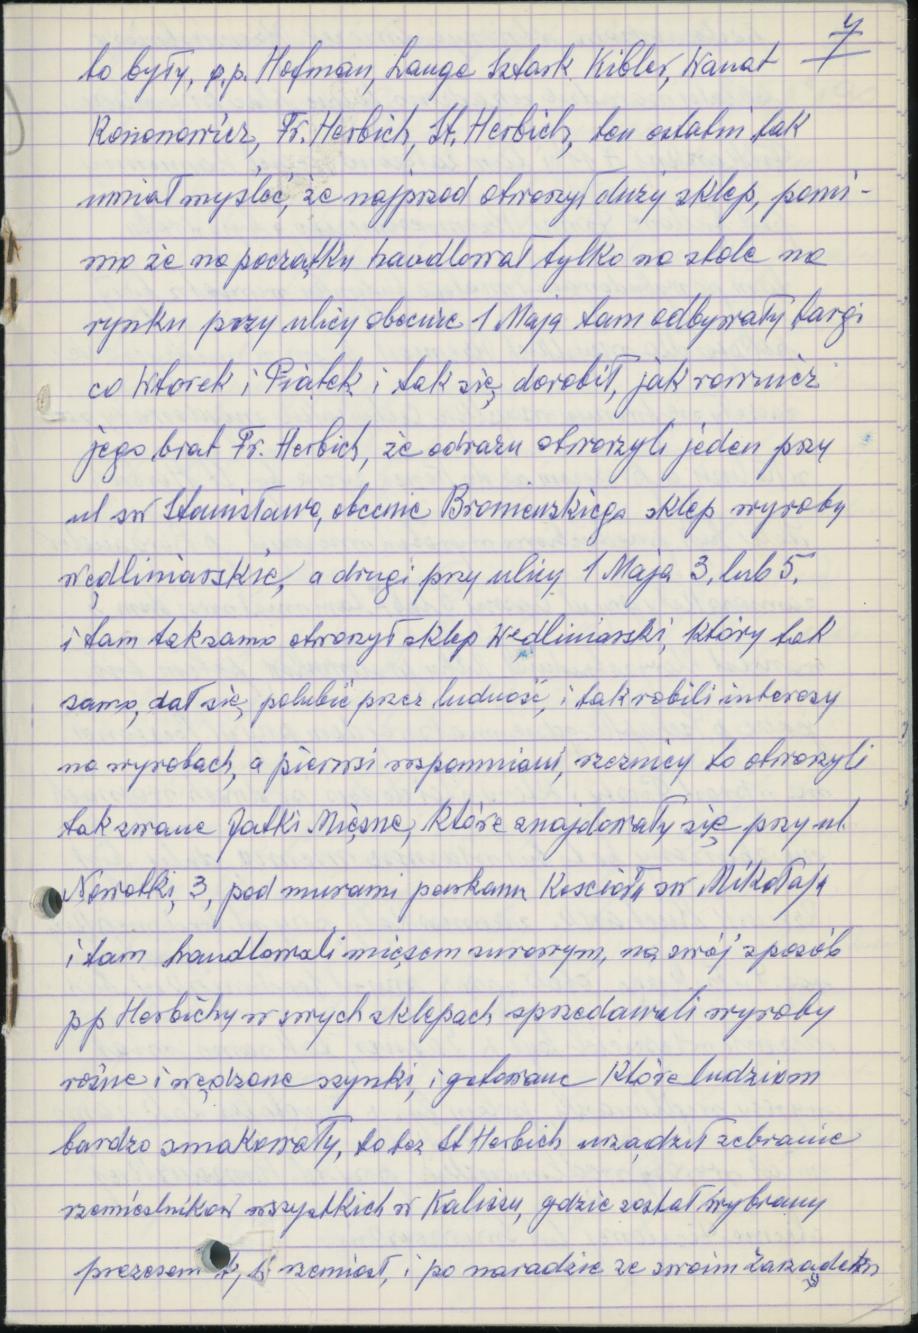 7
to były, p.p. Hofman, Lange Sztark Kibler, Wanat
Kononowicz, Fr. Herbich, St. Herbich, ten ostatni tak
umiał myśleć, że najprzod otworzył duży sklep, pomi-
mo że na początku handlował tylko na stole na
rynku przy ulicy obecnie 1 Maja tam odbywały targi
co Wtorek i Piątek i tak się dorobił, jak rownież
jego brat Fr. Herbich, że odrazu otworzyli jeden przy
ul św Stanisława, obecnie Broniewskiego sklep wyroby
wędliniarskie, a drugi przy ulicy 1 Maja 3, lub 5,
i tam taksamo otworzył sklep Wędliniarski, który tak
samo, dał się, polubić przez ludność, i tak robili interesy
na wyrobach, a pierwsi wspomniani, rzeznicy to otworzyli
tak zwane Jatki Mięsne, Które znajdowały się przy ul.
Nowotki, 3, pod murami parkanu Koscioła św Mikołaja
i tam handlowali mięsem surowym, na swój sposób
p p Herbichy w swych sklepach sprzedawali wyroby
rożne i wędzone szynki, i gotowane Które ludziom
bardzo smakowały, to też St Herbich urządził zebranie
rzemieslnikow wszystkich w Kaliszu, gdzie został wybrany
prezesem rzemiosł, i po naradzie ze swoim Zarządem